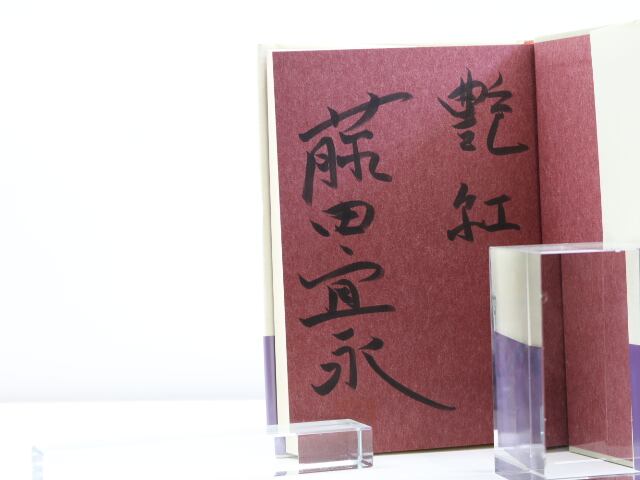 艶紅
藤田宜永